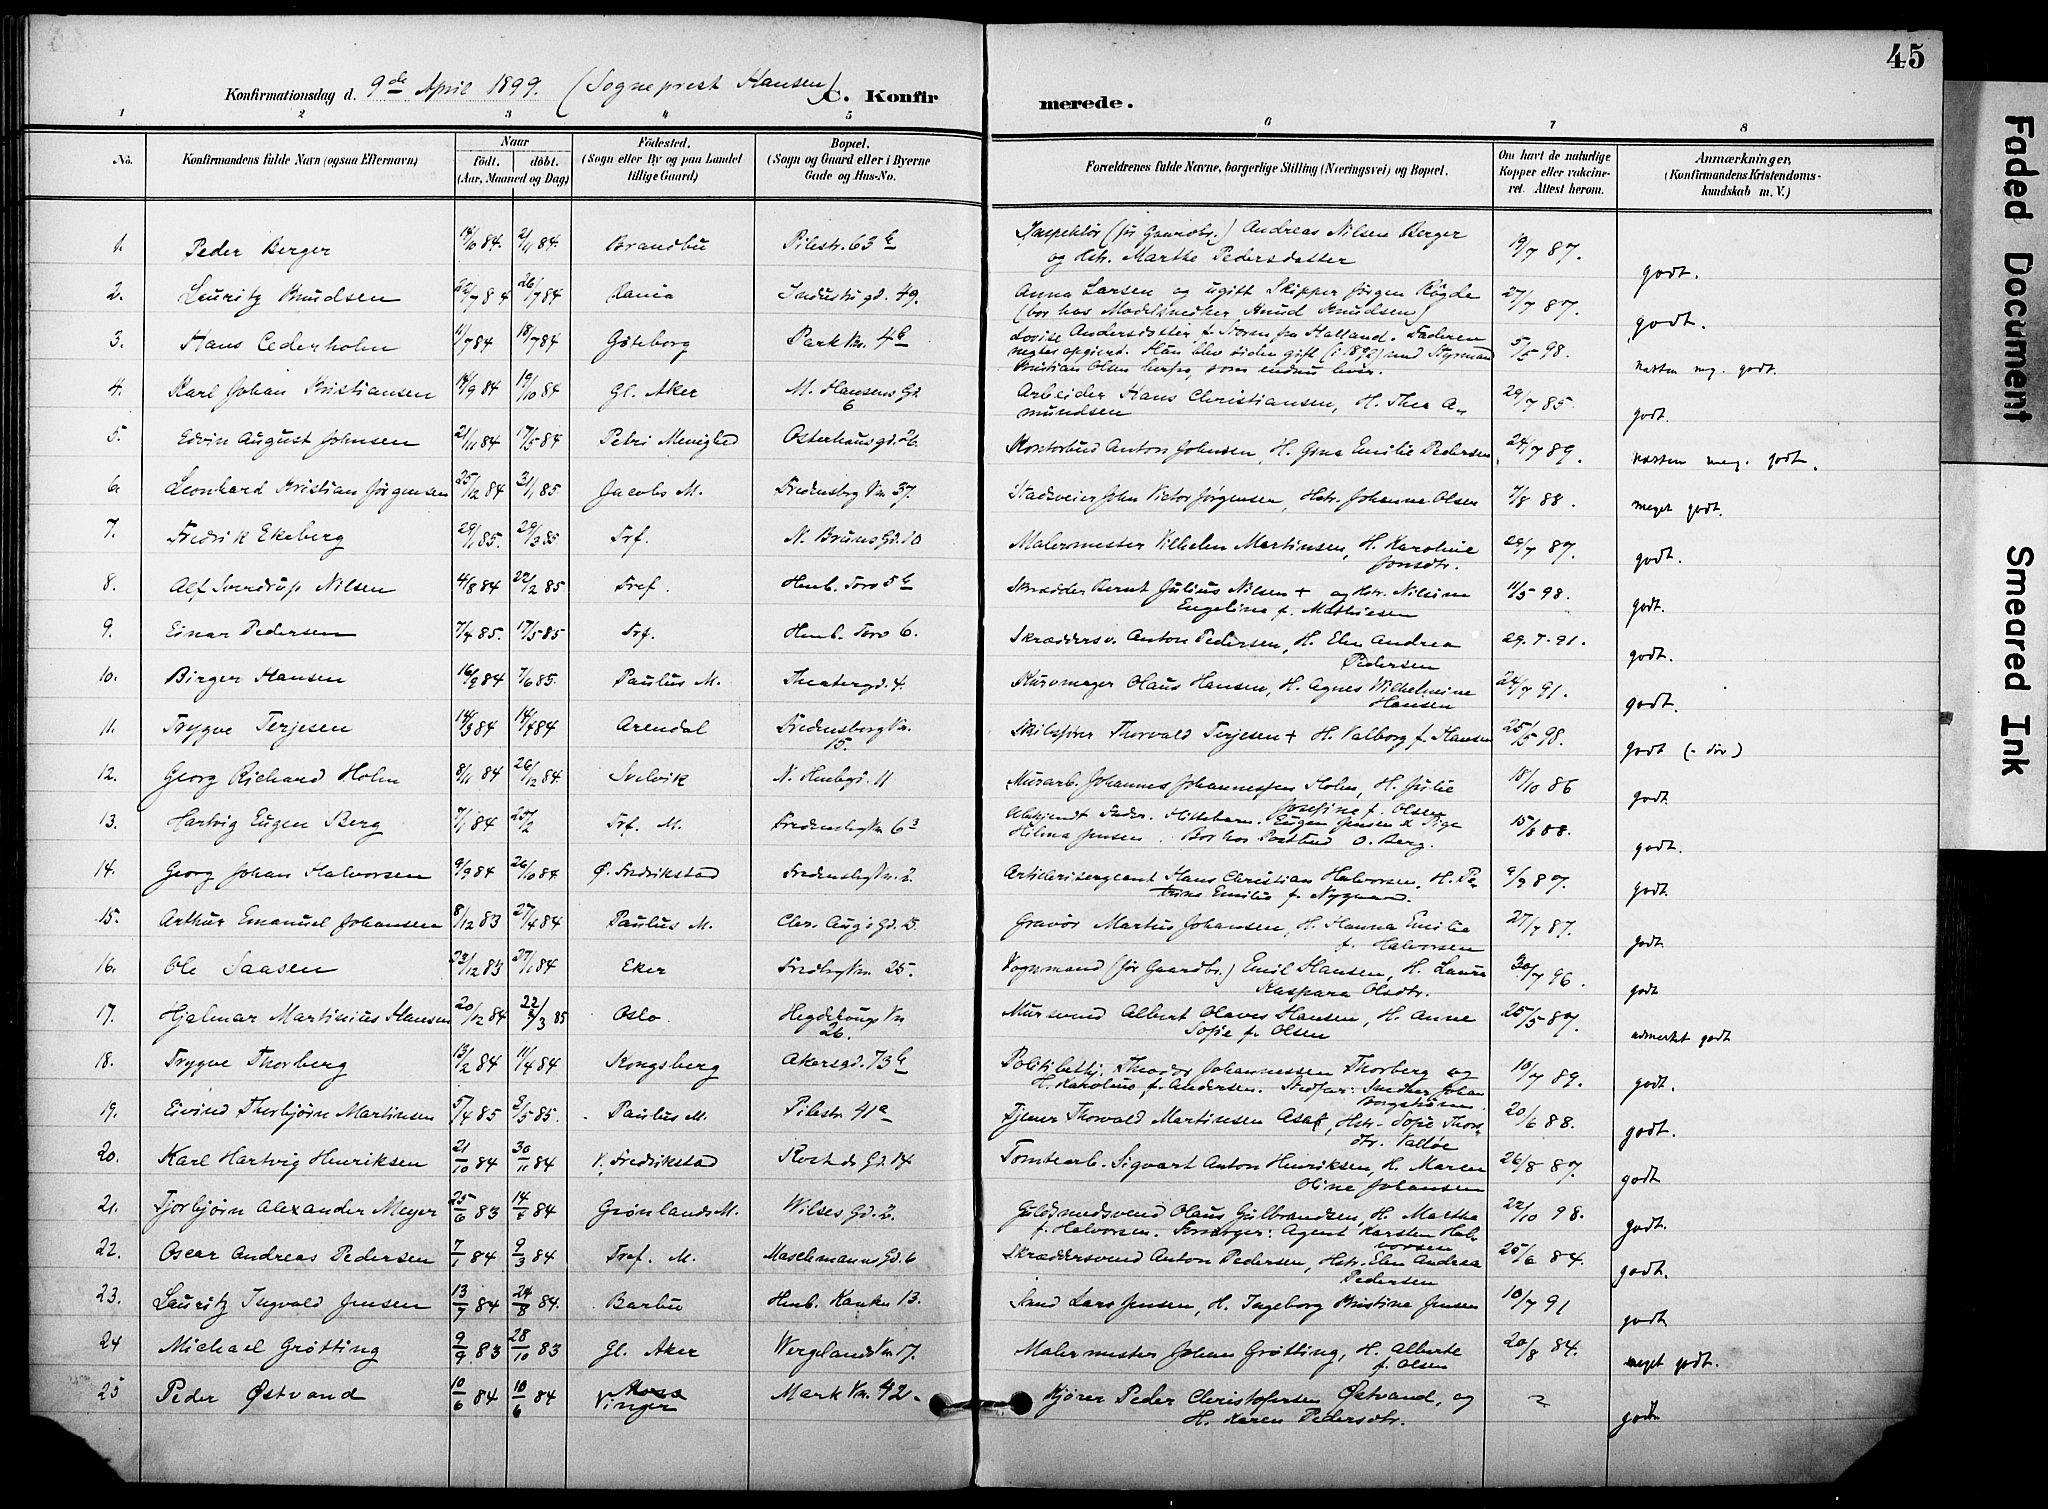 45
Konfirmationsdag d. 9de April 1899. (Sogneprest Hansen) C. Konfirmerede.
1 2 3 4 5 6 7 8
No. Konfirmandens fulde Navn (ogsaa Efternavn) Naar født. døbt. (Aar, Maaned og Dag) Fødested. (Sogn eller By og paa Landet tillige Gaard) Bopæl. (Sogn og Gaard eller i Byerne Gade og Hus-No. Forældrenes fulde Navne, borgerlige Stilling (Næringsvei) og Bopæl. Om havt de naturlige Kopper eller vakcineret. Attest herom. Anmærkninger, (Konfirmandens Kristendomskundskab m. V.)
1. Peder Berger 14/10 84 2/11 84. Brandbu Pilestr. 63 b Inspektør (før Gaardbr.) Andreas Nilsen Berger 19/7 87. godt.
og Hstr. Marthe Pedersdatter
2. Lauritz Knudsen 22/7 84 26/7 84 Industrigd. 49. Anna Larsen og ugift Skipper Jørgen Røgde 27/7 87. godt.
(bor hos Knud Knudsen)
3. Hans Cederholm 11/7 84 18/7 84 Gøteborg Parkvn. 4 b Lovise Andersdatter f. fra Halland. Faderen 5/5 98. næsten mg. godt.
Han blev siden gift (i 1892) med Styrmand
Kristian Olsen herfra, som endnu lever.
4. Karl Johan Kristiansen 14/9 84 19/10 84 Gl. Aker M. Hansens Gd. 6 Arbeider Hans Christiansen, H. Thea A- 29/7 85. godt.
mundsen
5. Edvin August Johnsen 21/11 84 17/5 84 Petri Menighed Osterhausgd. 26. Kontorbud Anton Johnsen, H. Gina Emilie Pedersen 24/7 89. næsten meg. godt.
6. Leonhard Kristian Jørgensen 25/12 84 3/1 85. Jacobs M. Fredensbg Vn 37. John Victor Jørgensen, Hstr. Johanne Olsen 7/8 88. meget godt.
7. Fredrik Ekeberg 29/1 85. 29/3 85 Trf. N. Bruns Gd. 10 Malermester Vilhelm Martinsen, H. Karoline 29/7 87. godt.
Jonsdtr.
8. Alf Sverdrup Nilsen 4/8 84 22/2 85 Tref. Hmb. Torv 5 b Skrædder Bernt Julius Nilsen + og Hstr. Nilsine 11/5 98. godt.
Engeline f. Mathiesen
9. Einar Pedersen 7/4 85. 17/5 85 Trf. Hmb. Torv 6. Skræddersv. Anton Pedersen, H. Elen Andrea 29.7.91. godt.
Pedersen
10. Birger Hansen 16/9 84 7/6 85. Paulus M. Theatergd. 4. Kurvmager Olaus Hansen, H. Agnes Wilhelmine 24/7 91. godt.
Hansen
11. Trygve Terjesen 14/3 84 14/4 84 Arendal Fredensborgvn. 15. Skibsfører Thorvald Terjesen + H. Valborg f. Hansen 25/5 98. godt (- dør)
12. Georg Richard Holm 8/11 84 26/12 84 Svelvik N. Hmbgd. 11 Murarb. Johannes Johannessen Holm, H. Julie 18/10 86 godt
Josefine f. Olsen
13. Hartvig Eugen Berg 7/1 84 25/2 Trf. M. Fredensbgvn 63 Eugen Jensen & Pige 15/8 88. godt.
Hilma Jensen. Bor hos Postbud O. Berg.
14. Georg Johan Halvorsen 9/9 84 26/10 84 Ø. Fredrikstad Fredensbgvn. 2. Artilerisergeant Hans Christian Halvorsen, H. Pe- 9/9 87. godt
trine Emilie f. Nygaard.
15. Arthur Emanuel Johansen 8/12 83 27/4 84 Paulus M. Chr. Aug.s Gd. 15. Gravør Martus Johansen, H. Hanna Emilie 27/7 87. godt
f. Halvorsen
16. Ole Saasen 23/12 83 27/1 84 Eker Fredbgvn 25. Vognmand (før Gaardbr.) Emil Hansen, H. Laura 30/7 96. godt
Kaspara Olsdtr.
17. Hjalmar Martinius Hansen 20/12 84 22/3 85 Oslo. Hegdehaugs Vn 26. Mursvend Albert Olaves Hansen, H. Anne 25/5 87. udmerket godt
Sofie f. Olsen
18. Trygve Thorberg 13/2 84 11/4 84 Kongsberg Akersgd. 73 b Politibetj. Theodor Johannessen Thorberg og 10/7 89. godt.
H. Karoline f. Andersen. Stedfar: Snedker Johan
19. Eivind Thorbjørn Martinsen 5/4 85 3/5 85. Paulus M. Pilestr 41 a Tjener Thorvald Martinsen Asak, Hstr. Sofie Thors- 20/6 88. godt.
dtr. Valløe
20. Karl Hartvig Henriksen 21/10 84 30/11 84 V. Fredrikstad Rosteds Gd. 14 Tomtearb. Sigvart Anton Henriksen, H. Maren 26/8 87. godt
Oline Johansen
21. Tjorbjørn Alexander Meyer 25/6 83 14/4 84 Grønlands M. Wilses Gd. 2. Guldsmedsvend Olaus Gulbrandsen, H. Martha 22/10 98. godt.
f. Halvorsen. Forsørger: Agent Karsten Hal-
vorsen
22. Oscar Andreas Pedersen 7/1 84 9/3 84 Tref. M. Maschmanns Gd. 6 Skræddersvend Anton Pedersen, Hstr. Elen Andrea 25/6 84. godt.
Pedersen
23. Lauritz Ingvald Jensen 13/7 84 24/8 84. Barbu Hmb. Kankn 13. Smed Lars Jensen, H. Ingeborg Kristine Jensen 10/7 91 godt
24 Michael Grøtting 9/9 83 28/10 83 Gl. Aker Wergelands Vn 17. Malermester Johan Grøtting, H. Alberte 20/8 84. meget godt.
f. Olsen
25 Peder Østvand 10/6 84 10/6 84 Moss Vinger Mark Vn. 42. Kjører Peder Christofersen Østvand, og ? godt
H. Karen Pedersdtr.
Faded Document
Smeared Ink